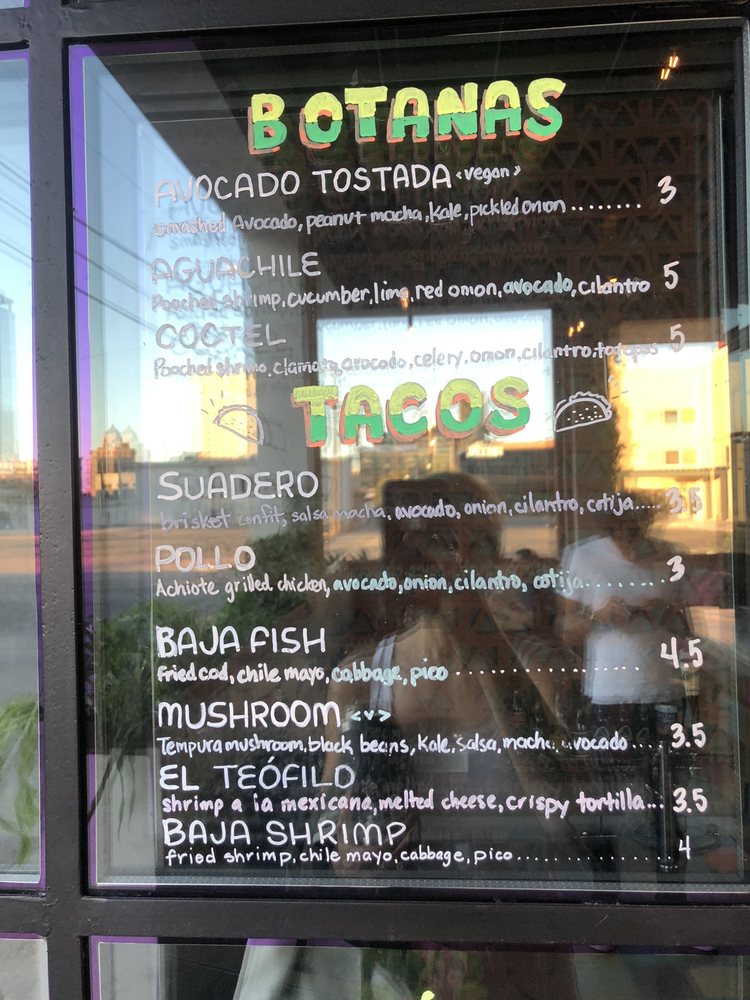 BOTANAS
AVOCADO TOSTADA <vegan>
smashed Avocado, peanut macha, kale, pickled onion ........ 3
AGUACHILE
Poached shrimp, cucumber, lime, red onion, avocado, cilantro 5
COCTEL
Poached shrimp, clamato, avocado, celery, onion, cilantro, totopos 5
TACOS
SUADERO
brisket confit, salsa macha, avocado, onion, cilantro, cotija..... 3.5
POLLO
Achiote grilled chicken, avocado, onion, cilantro, cotija......... 3
BAJA FISH
fried cod, chile mayo, cabbage, pico .................. 4.5
MUSHROOM <v>
Tempura mushroom, black beans, kale, salsa, macha, avocado .... 3.5
EL TEÓFILO
shrimp a la mexicana, melted cheese, crispy tortilla... 3.5
BAJA SHRIMP
fried shrimp, chile mayo, cabbage, pico.................. 4